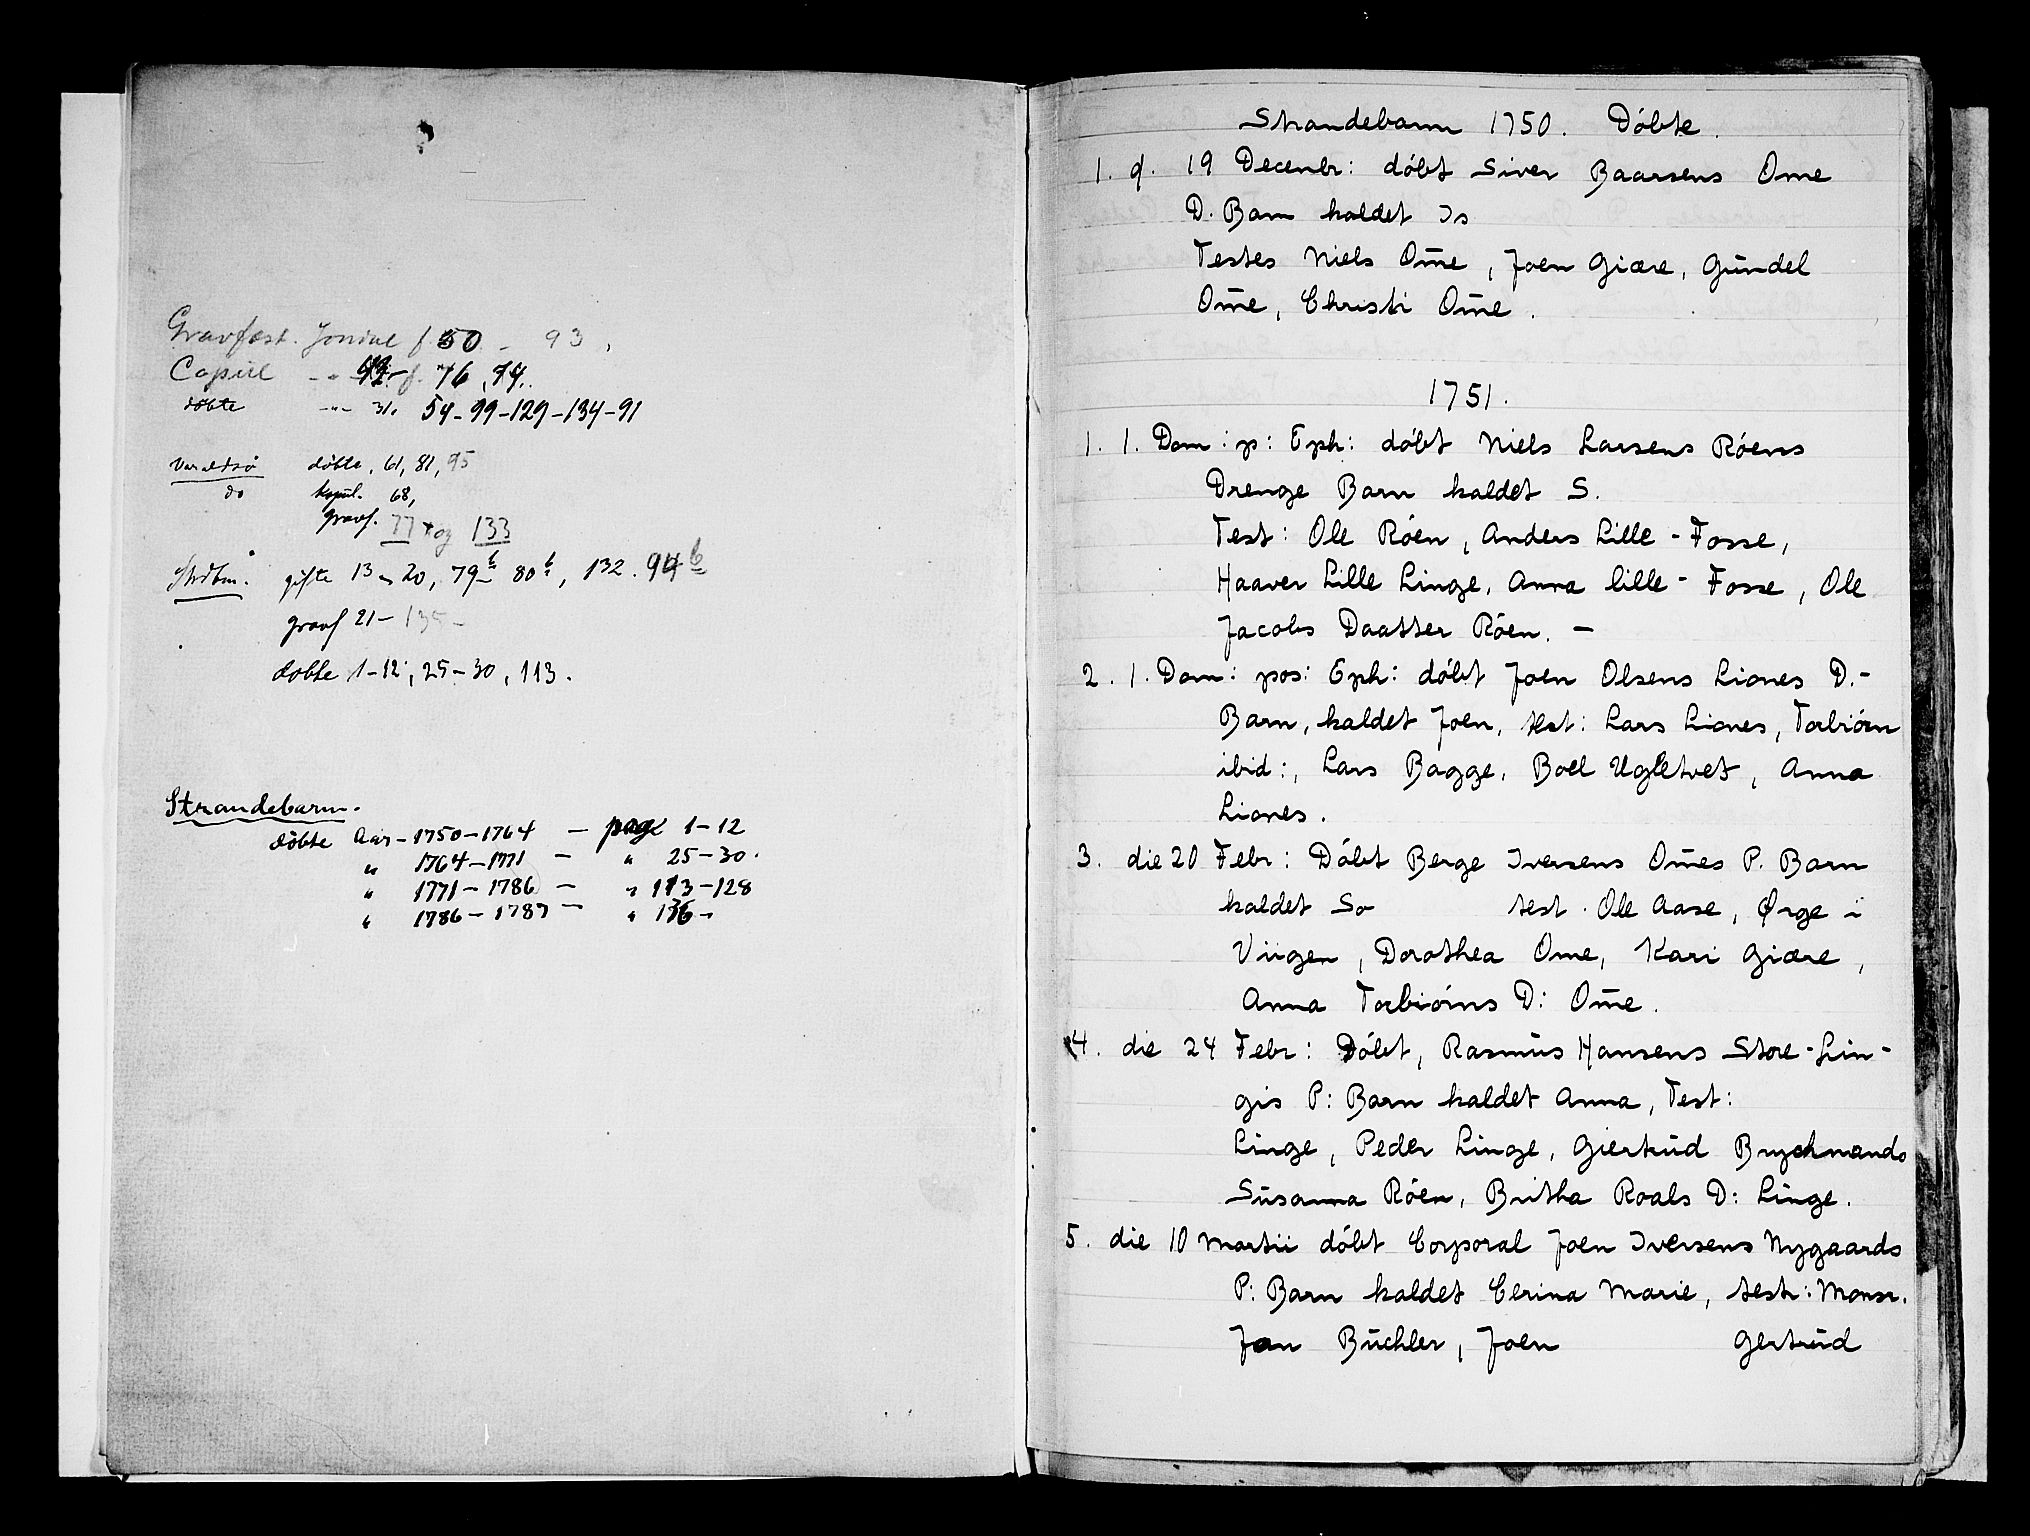 Gravfæst. Jondal f. 50 - 93,
Copul - " f. 76, 94.
døbte -"- 31. 54-99-129-134-91
Varaldsø døbte, 61, 81, 95
do kopul. 68,
gravf. 77 og 133
Strdbm. gifte 13-20, 79b 80b, 132. 94b
gravf 21-135-
døbte 1-12, 25-30, 113.
Strandebarm.
døbte Aar-1750-1764 - page 1-12
" 1764-1771 - " 25-30.
" 1771-1786 - " 113-128
" 1786-1787 - " 136-
Strandebarm 1750. Döbte.
1. d. 19 Decenbr: döbt Siver Baarsens Ome
D. Barn kaldet Is
Testes Niels Om̄e, Joen Giære, Gŭndel
Om̄e, Christi Om̄e.
1751.
1. 1. Dom: p: Eph: döbt Niels Larsens Röens
Drenge Barn kaldet S.
Test: Ole Röen, Anders Lille-Fosse,
Haaver Lille Linge, Anna lille-Fosse, Ole
Jacobs Daatter Röen. -
2. 1. Dom: pos: Eph: döbt Joen Olsens Liones D.-
Barn, kaldet Joen, test: Lars Liones, Torbiörn
ibid:, Lars Bagge, Boel Ugletvet, Anna
Liones.
3. die 20 Febr: Döbt Berge Iversens Om̄es P. Barn
kaldet So test. Ole Aase, Ørge i
Viigen, Dorothea Ome, Kari Giære,
Anna Torbiörns D: Om̄e.
4. die 24 Febr: Döbt, Rasmŭs Hansens Store-Lin-
gis P: Barn kaldet Anna, Test:
Linge, Peder Linge, Giertrŭd Brychnands
Sŭsanna Röen, Britha Roals D: Linge.
5. die 10 Martii döbt Corporal Joen Iversens Nygaards
P: Barn kaldet Cerina Marie, test: Monsr.
Jan Bŭchler, Joen Gertrŭd